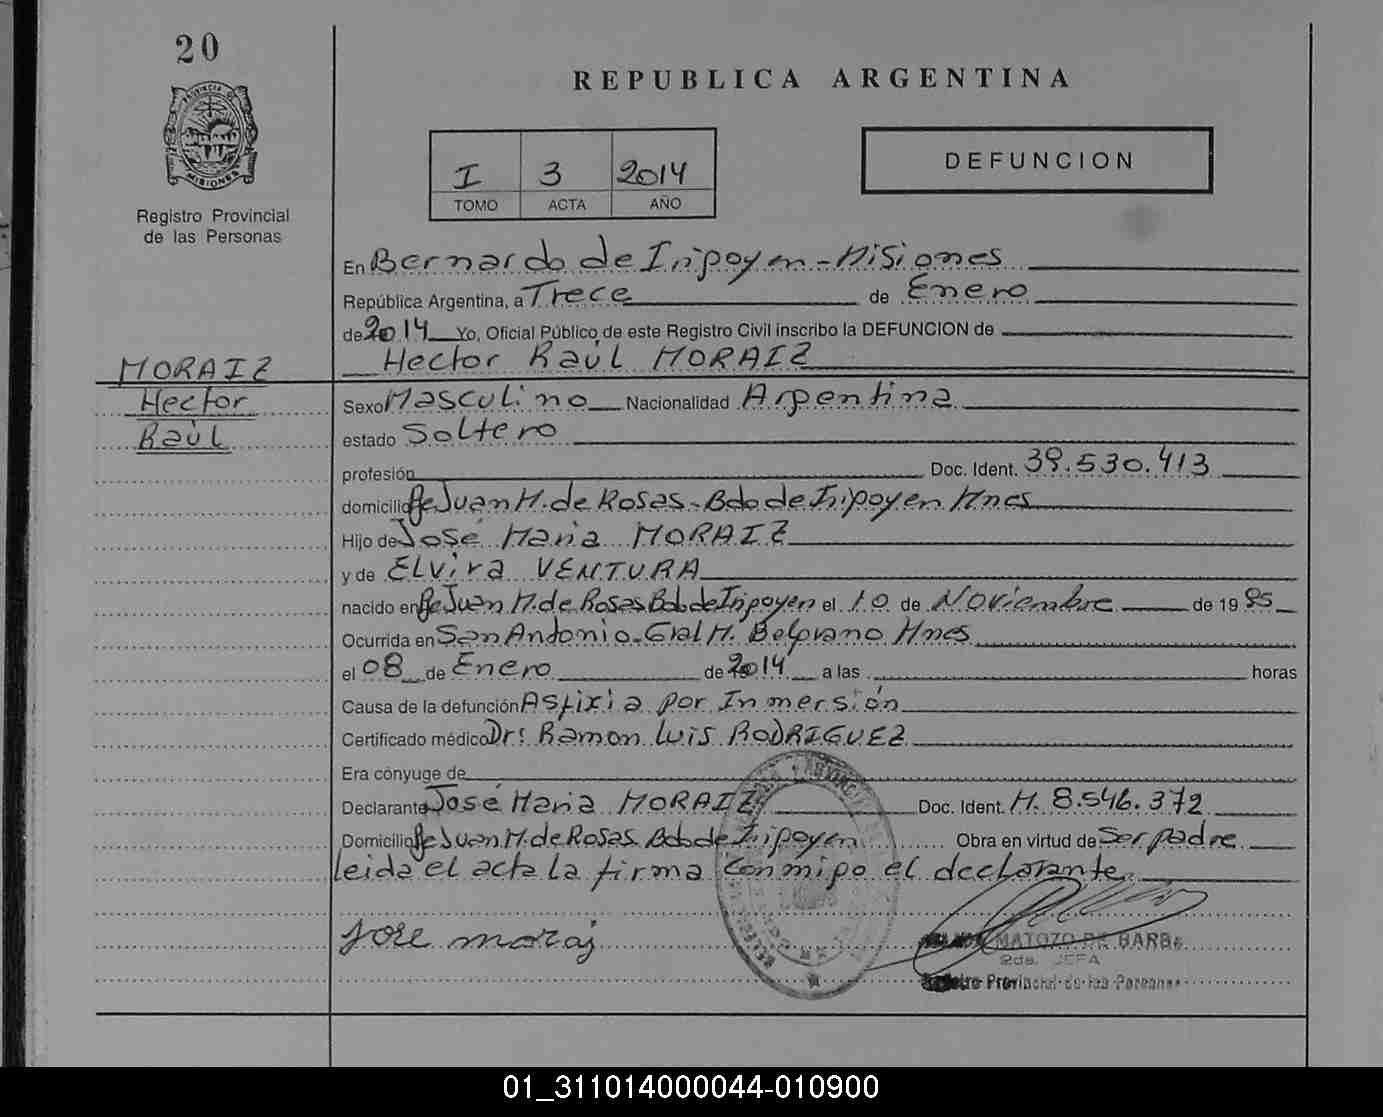 20
REPUBLICA ARGENTINA
PROVINCIA DE
MISIONES
Registro Provincial
de las Personas
I 3 2014
TOMO ACTA AÑO
DEFUNCION
En Bernardo de Irigoyen - Misiones
República Argentina, a Trece de Enero
de 2014 Yo, Oficial Público de este Registro Civil inscribo la DEFUNCION de
Hector Raúl MORAIZ
MORAIZ
Hector
Raúl
Sexo Masculino Nacionalidad Argentina
estado Soltero
profesión Doc. Ident. 39.530.413
domicilio Pje Juan M. de Rosas - Bdo de Irigoyen Mnes
Hijo de José Maria MORAIZ
y de Elvira VENTURA
nacido en Pje Juan M. de Rosas Bdo de Irigoyen el 10 de Noviembre de 19 95
Ocurrida en San Antonio - Gral M. Belgrano Mnes
el 08 de Enero de 2014 a las horas
Causa de la defunción Asfixia por Inmersión
Certificado médico Dr: Ramon Luis RODRIGUEZ
Era cónyuge de
Declarante José Maria MORAIZ Doc. Ident. M. 8.546.372
Domicilio Pje Juan M. de Rosas. Bdo de Irigoyen Obra en virtud de Ser padre
leida el acta la firma conmigo el declarante
Jose moraiz
MATOZO DE BARB
JEFA
Registro Provincial de las Personas
01_311014000044-010900